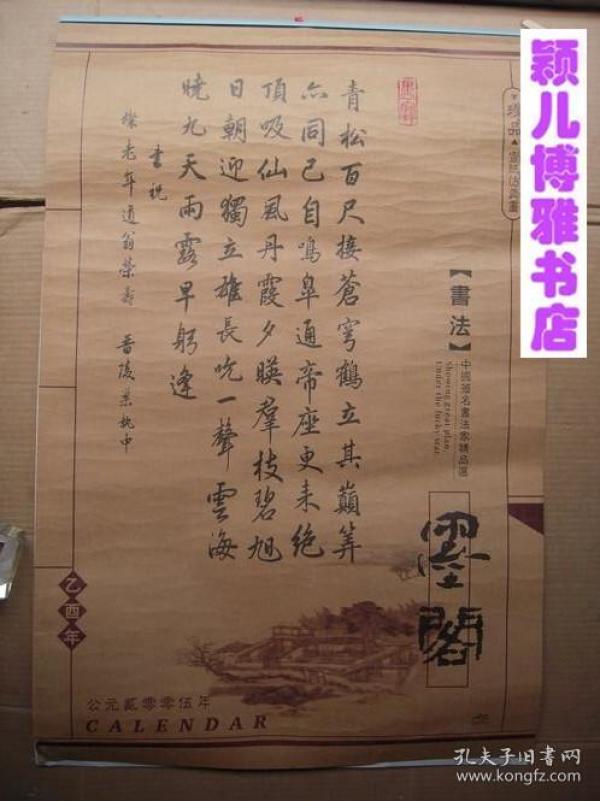 颖儿博雅书店
珍品
【書法】
中國著名書法家精品選
Showing great plan
Under the lucky star
墨閣
青松百尺接蒼穹鶴立其巔筭
亦同已自鳴皐通帝座更来絶
頂吸仙風丹霞夕映羣枝碧旭
日朝迎獨立雄長吭一聲雲海
曉九天雨露早躬逢
書祝
年道翁榮壽
晋陵
乙酉年
公元貳零零伍年
CALENDAR
孔夫子旧书网
www.kongfz.com